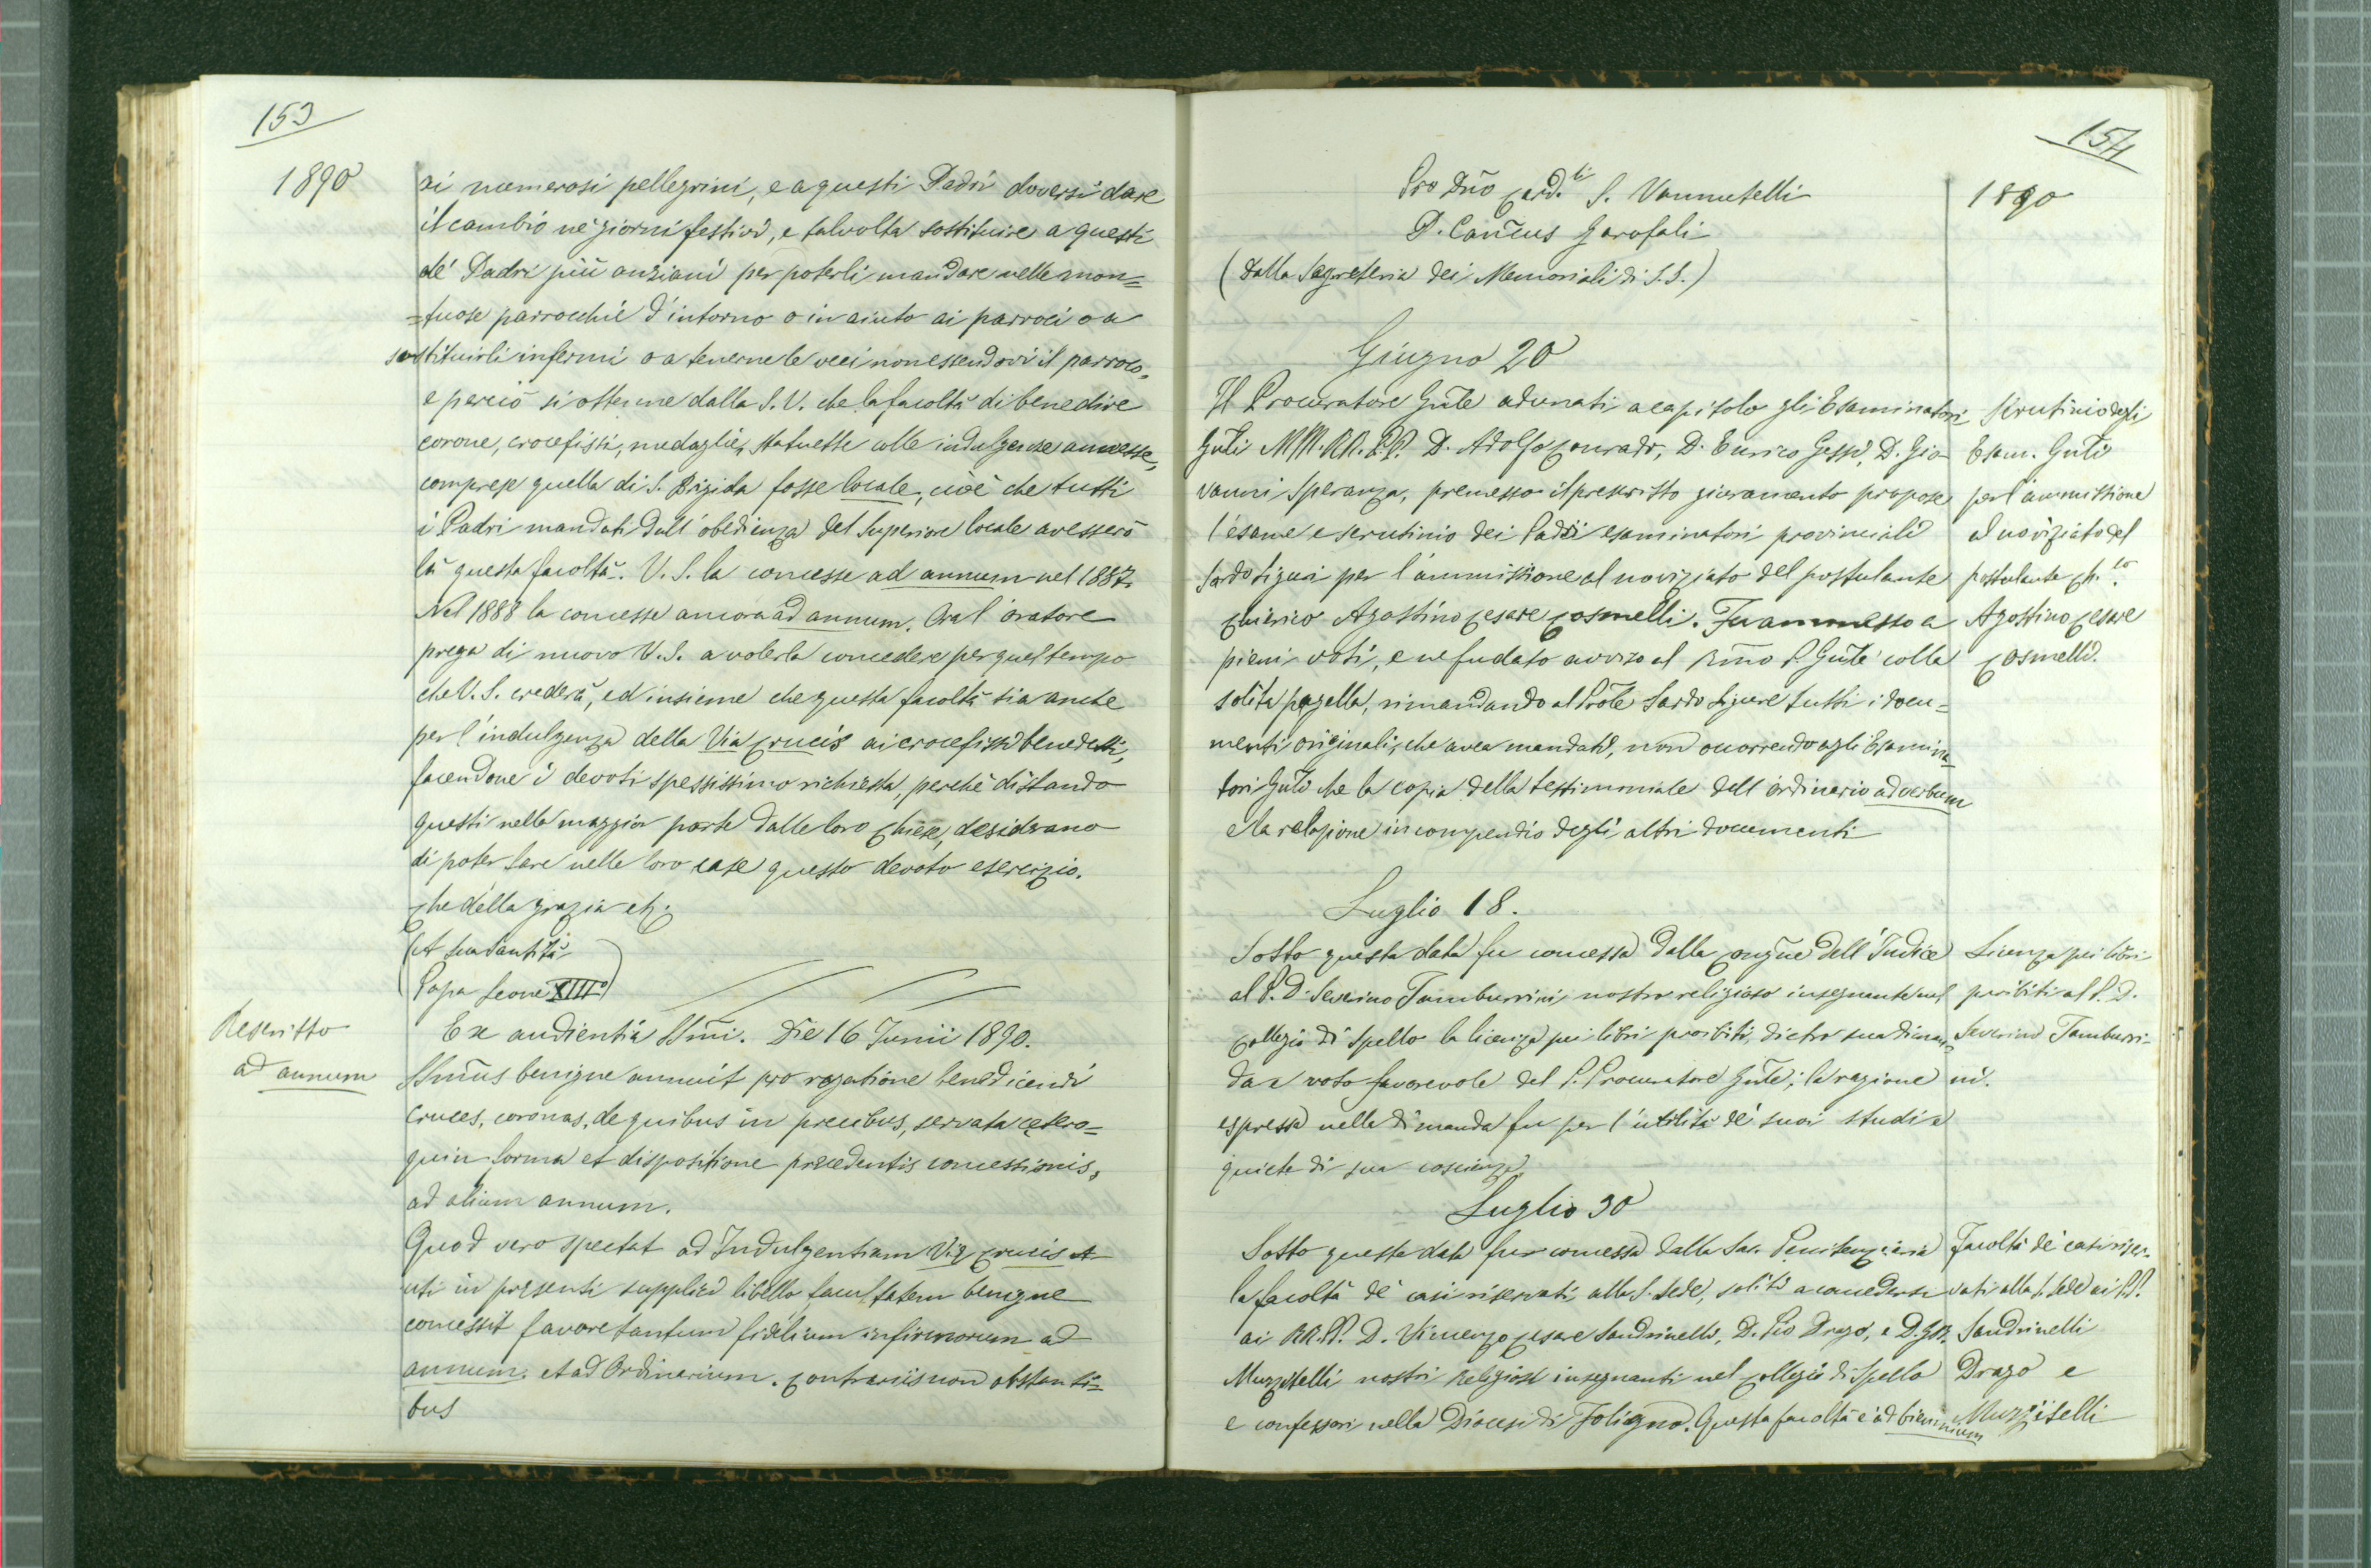 153
1890
ai numerosi pellegrini, e a questi Padri doversi dare
il cambio ne' giorni festivi, e talvolta sostituire a questi
de' Padri più anziani per poterli mandare nelle mon=
=tuose parrocchie d'intorno o in aiuto ai parroci o a
sostituirli infermi o a tenerne le veci non essendovi il parroco,
e perciò si ottenne dalla S. V. che la facoltà di benedire
corone, crocefissi, medaglie, statuette colle indulgenze annesse,
comprese quella di S. Brigida fosse locale, cioè che tutti
i Padri mandati dall'obedienza del Superiore locale avessero
là questa facoltà. V. S. la concesse ad annum nel 1887.
Nel 1888 la concesse ancora ad annum. Ora l'oratore
prega di nuovo V. S. a volerla concedere per quel tempo
che V. S. crederà, ed insieme che questa facoltà sia anche
per l'indulgenza della Via Crucis ai crocefissi benedetti,
facendone i devoti spessissimo richiesta, perchè distando
questi nella maggior parte dalle loro Chiese, desiderano
di poter fare nelle loro case questo devoto esercizio.
Che della grazia etc.
(A Sua Santità
Papa Leone XIII)
Rescritto
ad annum
Ex audientia SSmi. Die 16 Junii 1890.
SSmus benigne annuit pro rogatione benedicendi
cruces, coronas, de quibus in precibus, servata cetero=
quin forma et dispositione precedentis concessionis,
ad alium annum.
Quod vero spectat ad Indulgentiam Viæ Crucis
uti in præsenti supplici libello facultatem benigne
concessit favore tantum fidelium infirmorum ad
annum. et ad Ordinarium. Contrariis non obstanti=
bus
154
1890
Pro Dño Card.li S. Vannutelli
D. Canĉus Garofali
(Dalla Segreteria dei Memoriali di S.S.)
Giugno 20
Il Procuratore Gñle adunati a capitolo gli Esaminatori
Gñli MM. RR. PP. D. Adolfo Conrado, D. Enrico Gessi, D. Gio=
vanni Speranza, premesso il prescritto giuramento propose
l'esame e scrutinio dei Padri esaminatori provinciali
Sardo Liguri per l'ammissione al noviziato del postulante
Chierico Agostino Cesare Cosmelli. Fu ammesso a
pieni voti, e ne fu dato avviso al Rmo P. Gñle colla
solita pagella, rimandando al Prole Sardo Ligure tutti i docu=
menti originali, che avea mandati, non occorrendo agli Esamina=
tori Gñli che la copia della testimoniale dell'ordinario ad verbum
e la relazione in compendio degli altri documenti
Scrutinio degli
Esam. Gñli
per l'ammissione
al noviziato del
postulante Ch.co
Agostino Cesare
Cosmelli.
Luglio 18.
Sotto questa data fu concessa dalla Congñe dell'Indice
al P. D. Severino Tamburrini nostro religioso insegnante nel
Collegio di Spello la licenza pei libri proibiti, dietro sua diman=
da e voto favorevole del P. Procuratore Gñle; la ragione
espressa nella dimanda fu per l'utilità de' suoi studi e
quiete di sua coscienza.
Licenza pei libri
proibiti al P. D.
Severino Tamburri=
ni.
Luglio 30
Sotto questa data fu concessa dalla Sac. Penitenzieria
la facoltà de' casi riservati alla S. Sede, soliti a concedersi
ai RR. PP. D. Vincenzo Cesare Sandrinelli, D. Pio Drago, e D. GB.
Muzzitelli nostri Religiosi insegnanti nel Collegio di Spello
e confessori nella Diocesi di Foligno. Questa facoltà è ad biennium
Facoltà de' casi riser=
vati alla S. Sede ai PP.
Sandrinelli
Drago e
Muzzitelli